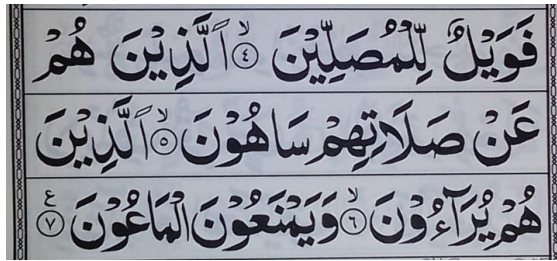 فَوَيْلٌ لِّلْمُصَلِّيْنَ ۙ﴿۴﴾ الَّذِيْنَ هُمْ
عَنْ صَلَاتِهِمْ سَاهُوْنَ ۙ﴿۵﴾ الَّذِيْنَ
هُمْ يُرَآءُوْنَ ۙ﴿۶﴾ وَيَمْنَعُوْنَ الْمَاعُوْنَ ﴿۷﴾ ع